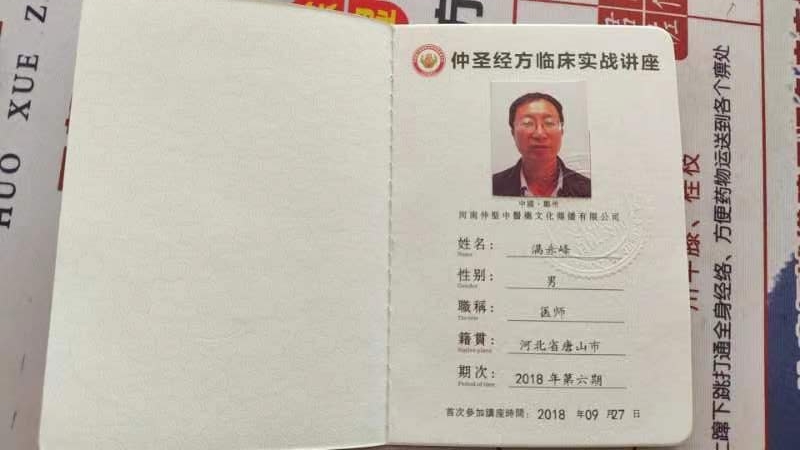 HUO XUE Z
仲圣经方临床实战讲座
中國·鄭州
河南仲聖中醫藥文化傳播有限公司
姓名：满赤峰
Name
性别：男
Gender
職稱：医师
籍貫：河北省唐山市
Native place
期次：2018年第六期
Period of time
首次参加講座時間：2018 年09 月27 日
上蹿下跳打通全身经络、方便药物运送到各个痹处